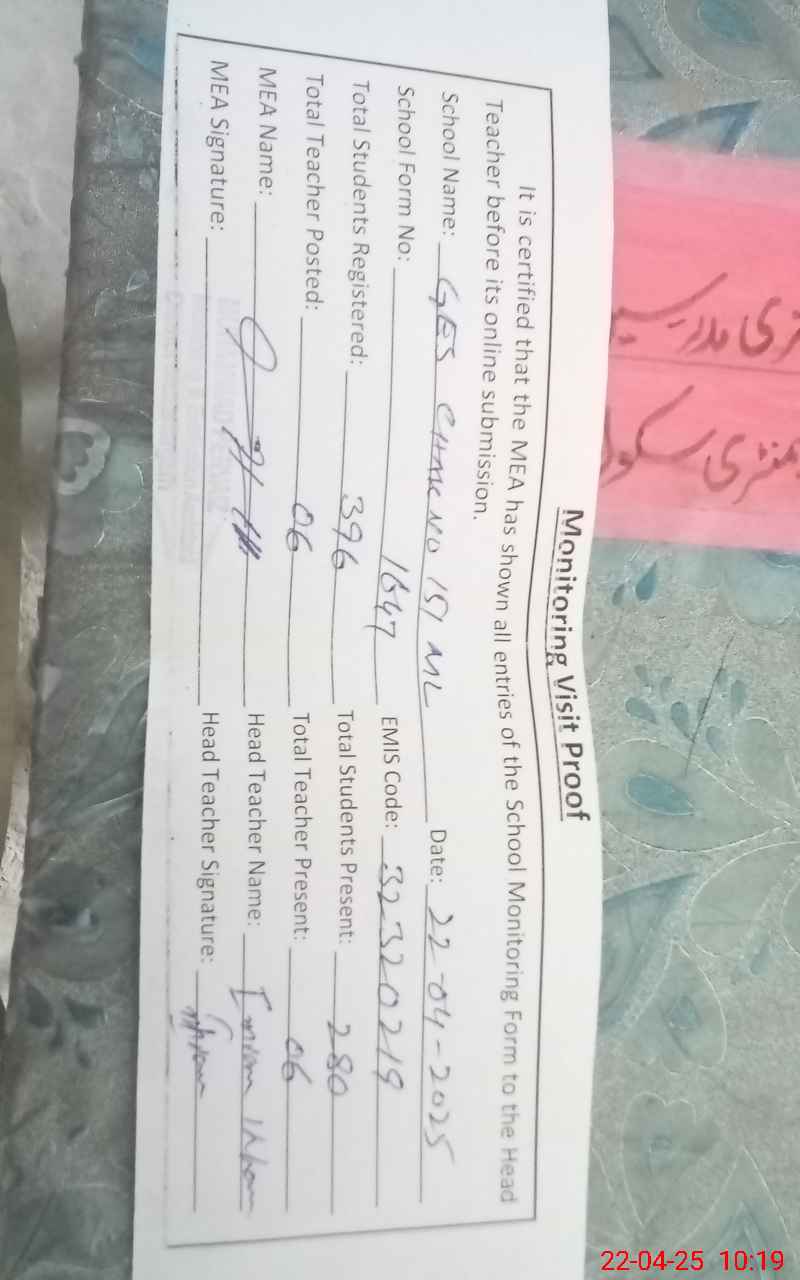 Monitoring Visit Proof
It is certified that the MEA has shown all entries of the School Monitoring Form to the Head
Teacher before its online submission.
School Name: GES CHAK NO 151 ML Date: 22-04-2025
School Form No: 1647 EMIS Code: 32320219
Total Students Registered: 396 Total Students Present: 280
Total Teacher Posted: 06 Total Teacher Present: 06
MEA Name: Head Teacher Name: Imran
MEA Signature: Head Teacher Signature:
22-04-25 10:19